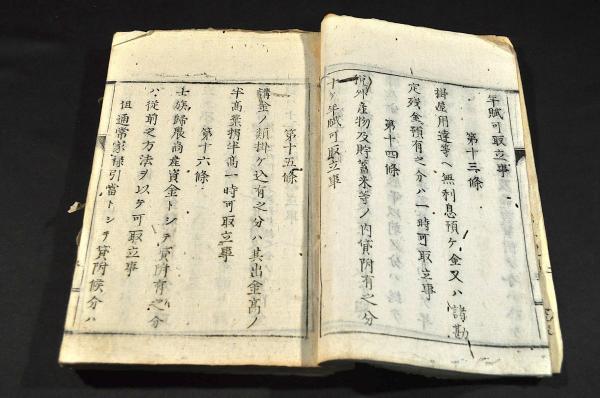 年賦可取立事
第十三條
掛屋用達等ヘ無利息預ケ金又ハ諸勘
定残金預有之分ハ一時可取立事
第十四條
産物及貯蓄米等ノ内貸附有之分
十ケ年賦可取立事
第十五條
講金ノ類掛ケ込有之分ハ其出金高ノ
半高業精半高一時可取立事
第十六條
士族歸農商産資金トシテ貸附有之分
ハ從前之方法ヲ以ケ可取立事
但通常家禄引當トシテ貸附候分ハ